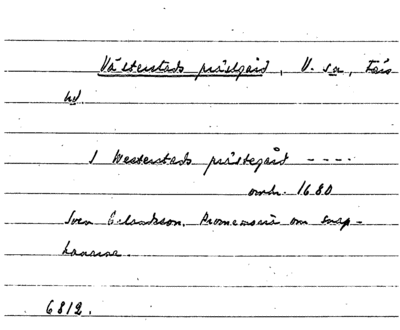 Västerstads prästgård, V. sa, Färs
hd.
I Westerstads prästegård ----
omkr. 1680
Sven Erlandsson. Promemoria om snap-
hanarna.
6812.